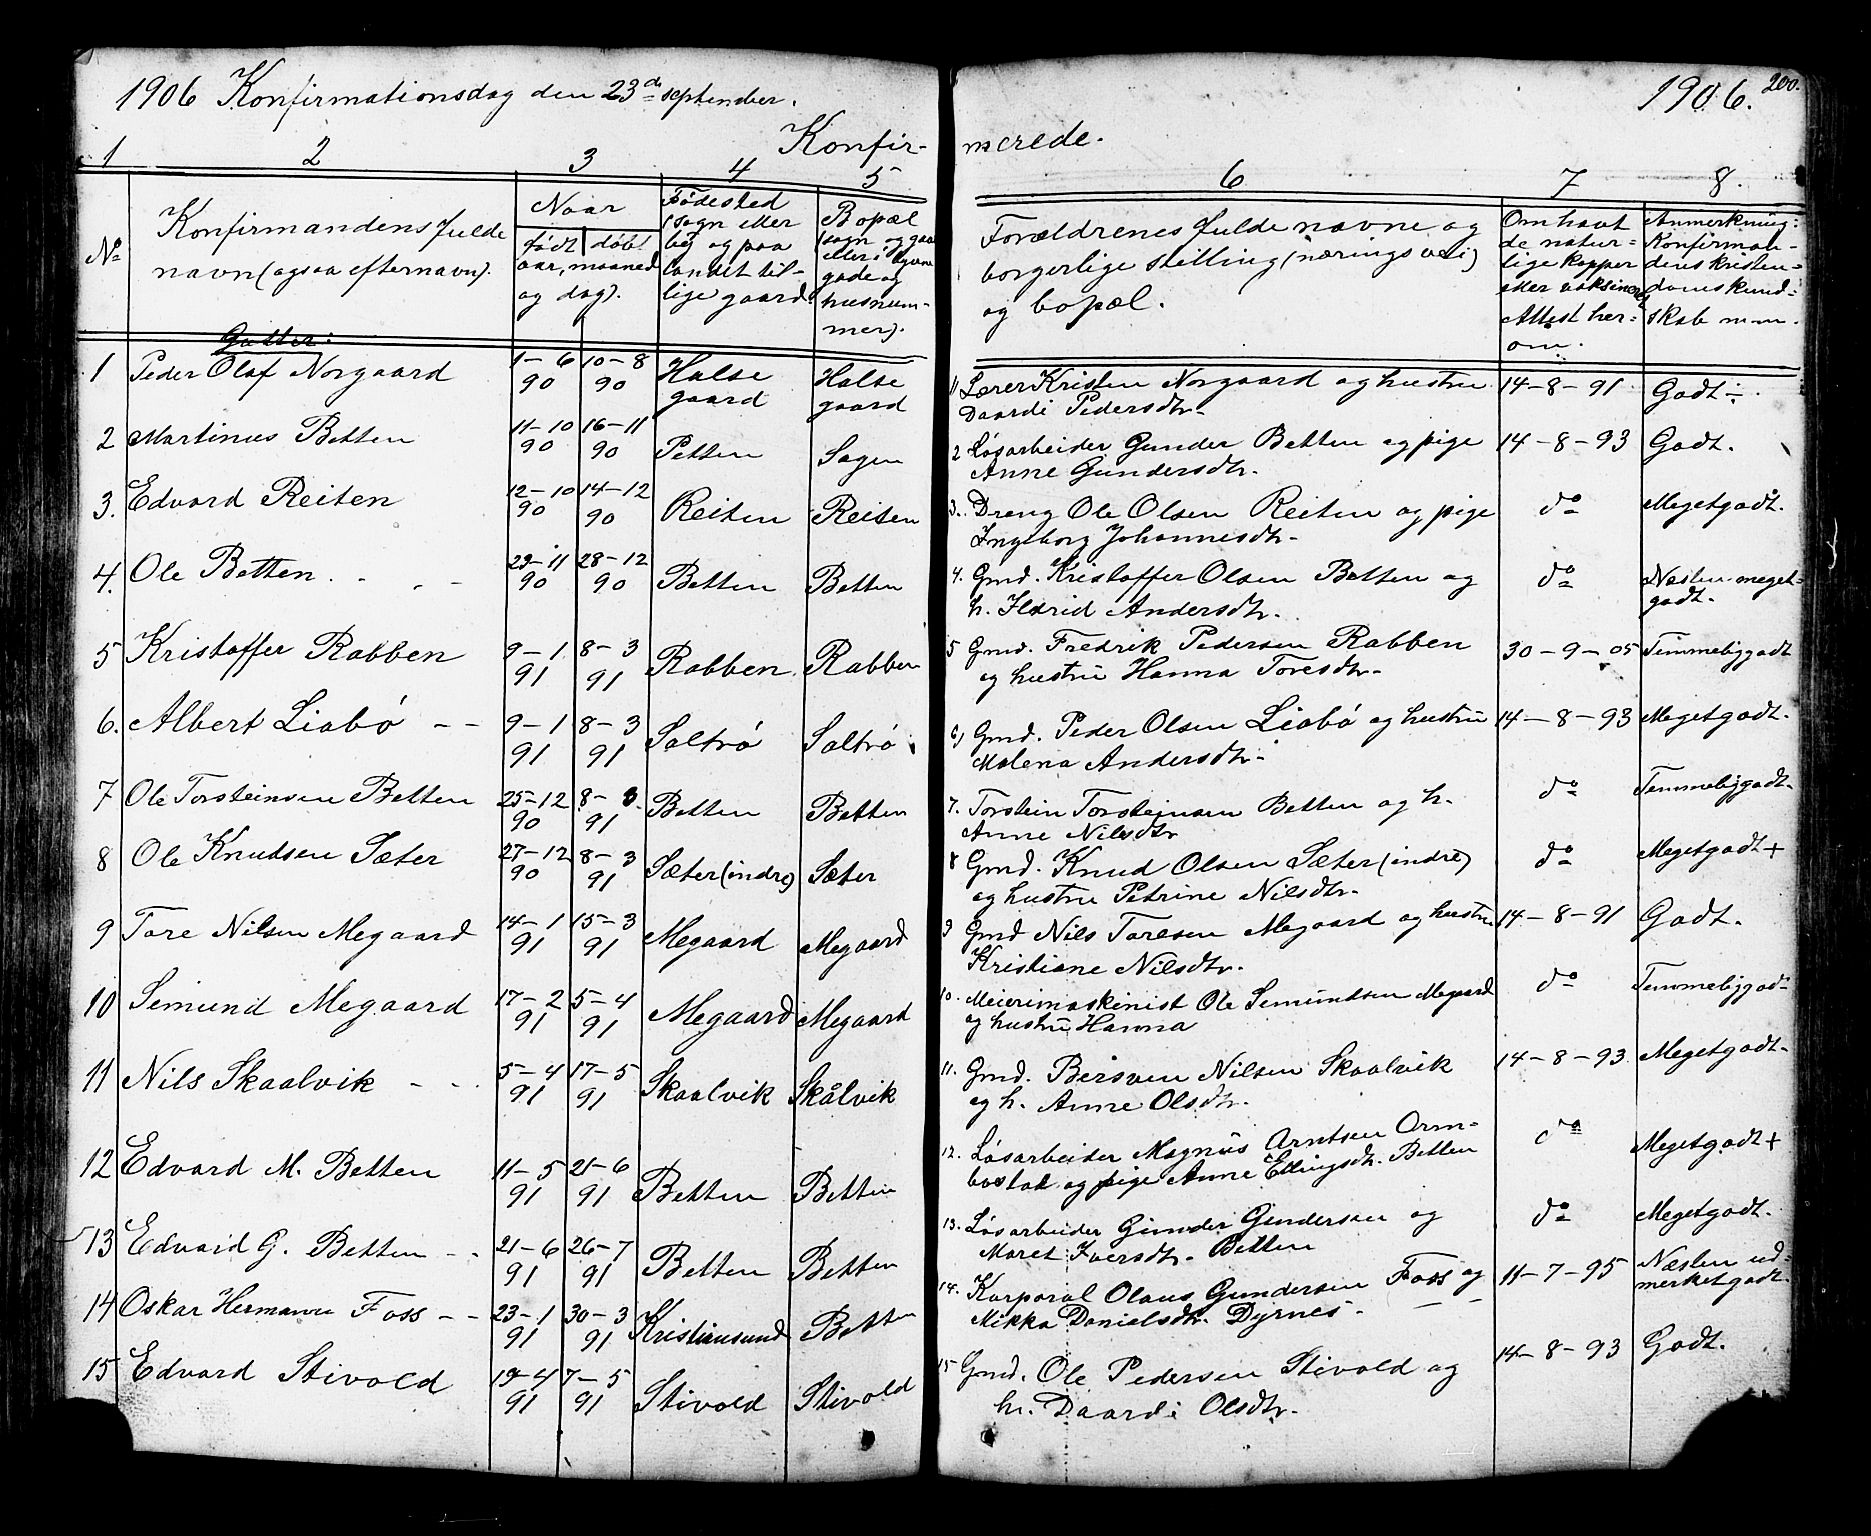 1906 Konfirmationsdag den 23de september.
Konfir-
1 2 3 4 5
No
Konfirmandens fulde
navn (ogsaa efternavn).
Naar
født døbt
aar, maaned
og dag).
Fødested
(sogn eller
by og paa
landet til-
lige gaard
Bopæl
(sogn og gaard
eller i byerne
gade og
husnum-
mer).
Gutter:
1 Peder Olaf Norgaard 1-6 90 10-8 90 Halse gaard Halse gaard
2 Martinus Betten 11-10 90 16-11 90 Petten Sagen
3. Edvard Reiten 12-10 90 14-12 90 Reiten Reiten
4. Ole Betten. - - - 29-11 90 28-12 90 Betten Betten
5 Kristoffer Rabben 9-1 91 8-3 91 Rabben. Rabben
6. Albert Liabø - - 9-1 91 8-3 91 Saltrø Saltrø
7 Ole Torsteinsen Betten 25-12 90 8-3. 91 Betten Betten
8 Ole Knudsen Sæter 27-12 90 8-3 91 Sæter (indre) Sæter
9 Tore Nilsen Megaard 14-1 91 15-3 91 Megaard Megaard
10 Semund Megaard 17-2 91 5-4 91 Megaard Megaard
11 Nils Skaalvik - - 5-4 91 17-5 91 Skaalvik Skålvik
12 Edvard M. Betten 11-5 91 21-6 91 Betten Betten
13 Edvard G. Betten - - 21-6 91 26-7 91 Betten Betten
14 Oskar Hermann Foss - - 23-1 91 30-3 91 Kristiansund Betten
15 Edvard Stivold 19-4 91 7-5 91 Stivold Stivold
1906. 200.
merede.
6 7 8.
Forældrenes fulde navne og
borgerlige stilling (næringsvei)
og bopæl.
Om havt
de natur-
lige kopper
eller vaksineret
Attest her-
om.
Anmerkning:
Konfirman-
dens kristen-
domskund-
skab m.m.
1) Lærer Kristen Norgaard og hustru 14-8-91 Godt ÷.
Daardi Pedersdtr-
2 Løsarbeider Gunder Betten og pige 14-8-93 Godt.
Anne Gundersdtr.
3. Dreng Ole Olsen Reiten og pige do Megetgodt.
Ingeborg Johannesdtr-
4. Gmd. Kristoffer Olsen Betten og do Næsten meget-
h. Ildrid Andersdtr. godt.
5 Gmd. Fredrik Pedersen Rabben 30-9-05 Temmeliggodt
og hustru Hanna Toresdtr-
6) Gmd. Peder Olsen Liabø og hustru 14-8-93 Megetgodt.
Malena Andersdtr-
7. Torstein Torsteinsen Betten og h. do Temmeliggodt.
Anne Nilsdtr
8 Gmd. Knud Olsen Sæter (indre) do Megetgodt+
og hustru Petrine Nilsdtr.
9 Gmd Nils Toresen Megaard og hustru 14-8-91 Godt.
Kristiane Nilsdtr.
10. Meierimaskinist Ole Semundsen Megaard do Temmeliggodt
og hustru Hanna
11. Gmd. Bersven Nilsen Skaalvik 14-8-93. Megetgodt.
og h. Anne Olsdtr.
12. Løsarbeider Magnus Arntsen Orm- do Megetgodt+
bostad og pige Anne Ellingsdtr. Betten
13. Løsarbeider Gunder Gundersen og do Megetgodt.
Maret Iversdtr. Betten
14. Korporal Olaus Gundersen Foss og 11-7-95 Næsten ud-
Mikka Danielsdtr. Dyrnes- - - merketgodt.
15 Gmd. Ole Pedersen Stivold og 14-8-93 Godt.
h. Daardi Olsdtr.